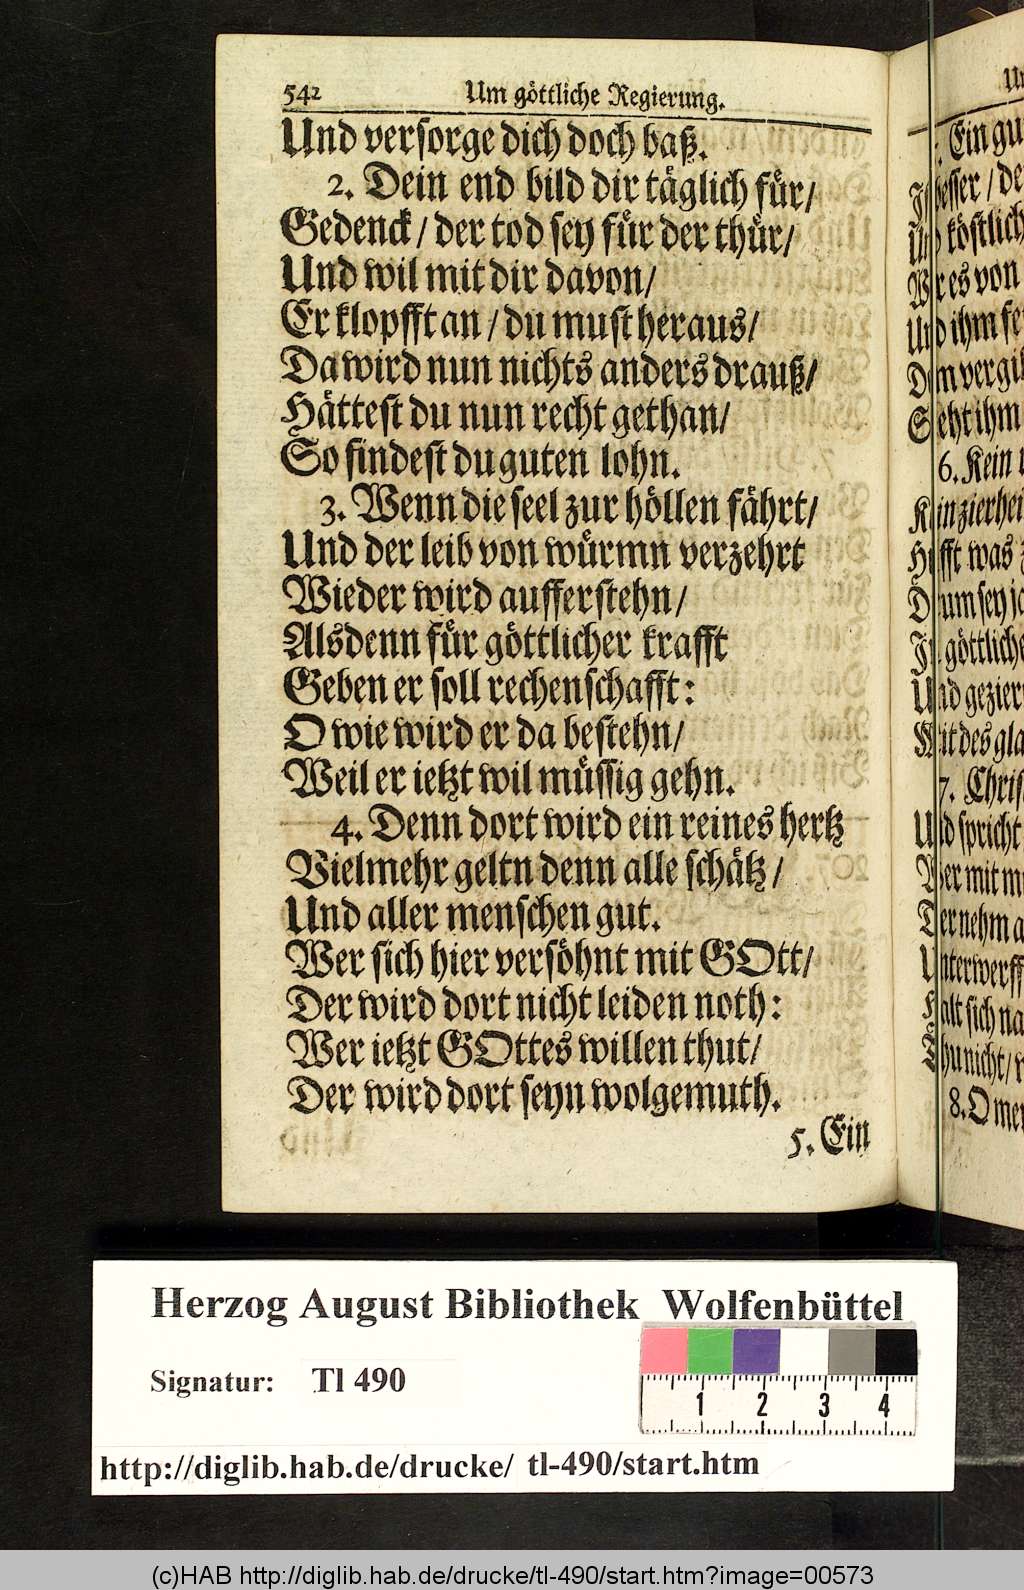 542 Um göttliche Regierung.
Und versorge dich doch baß.
2. Dein end bild dir täglich für/
Gedenck/ der tod sey für der thür/
Und wil mit dir davon/
Er klopfft an/ du must heraus/
Da wird nun nichts anders drauß/
Hättest du nun recht gethan/
So findest du guten lohn.
3. Wenn die seel zur höllen fährt/
Und der leib von würmn verzehrt
Wieder wird aufferstehn/
Alsdenn für göttlicher krafft
Geben er soll rechenschafft:
O wie wird er da bestehn/
Weil er ietzt wil müssig gehn.
4. Denn dort wird ein reines hertz
Vielmehr geltn denn alle schätz/
Und aller menschen gut.
Wer sich hier versöhnt mit GOtt/
Der wird dort nicht leiden noth:
Wer ietzt GOttes willen thut/
Der wird dort seyn wolgemuth.
5. Ein
Ein gu
besser / de
köstlich
es von
Und ihm
vergi
ihm
6. Kein
was
göttliche
Und
des gla
7. Chris
Und spricht
mit
nehm
sich
8. O
Herzog August Bibliothek Wolfenbüttel
Signatur: Tl 490
1 2 3 4
http://diglib.hab.de/drucke/ tl-490/start.htm
(c)HAB http://diglib.hab.de/drucke/tl-490/start.htm?image=00573